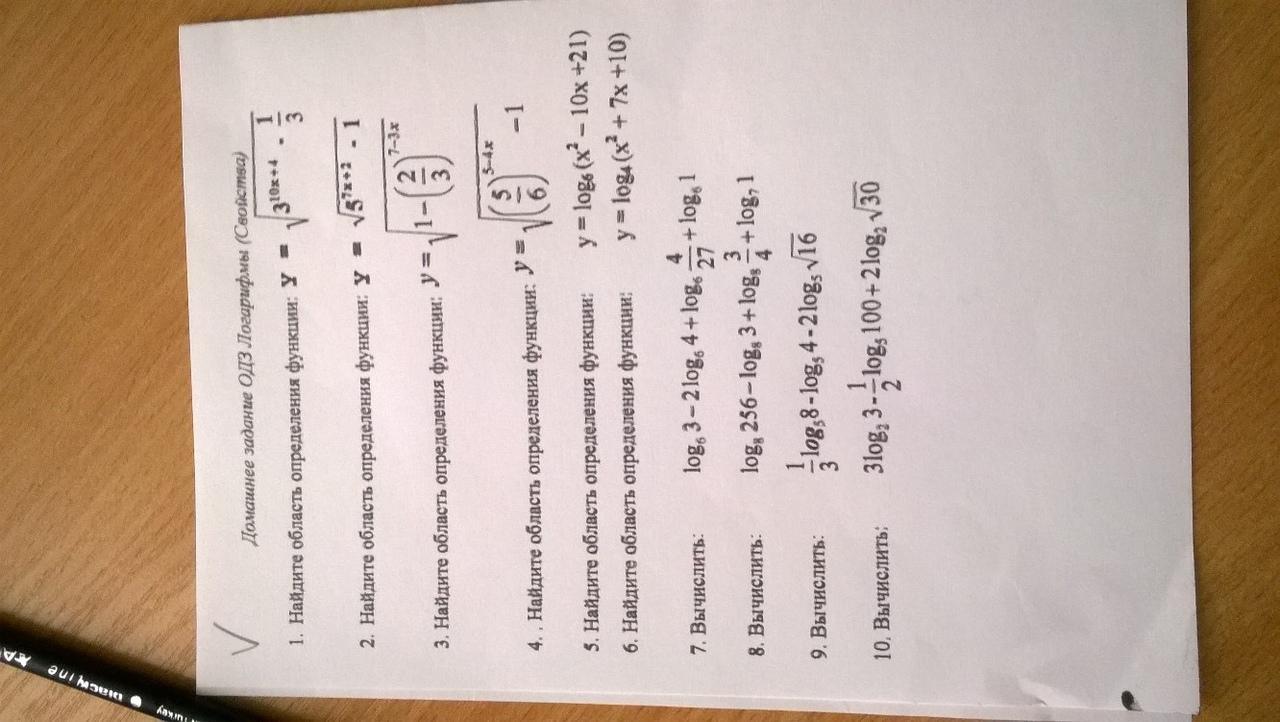 Домашнее задание ОДЗ Логарифмы (Свойства)
1. Найдите область определения функции: y = √(3^(10x+4) - 1/3)
2. Найдите область определения функции: y = √(5^(7x+2) - 1)
3. Найдите область определения функции: y = √(1 - (2/3)^(7-3x))
4. . Найдите область определения функции: y = √((5/6)^(5-4x)) - 1
5. Найдите область определения функции: y = log₆(x² - 10x +21)
6. Найдите область определения функции: y = log₄(x² + 7x +10)
7. Вычислить: log₆ 3 - 2 log₆ 4 + log₆ 4/27 + log₆ 1
8. Вычислить: log₈ 256 - log₈ 3 + log₈ 3/4 + log₇ 1
9. Вычислить: 1/3 log₅ 8 - log₅ 4 - 2 log₅ √16
10. Вычислить: 3 log₂ 3 - 1/2 log₅ 100 + 2 log₂ √30
blackline
Turkey